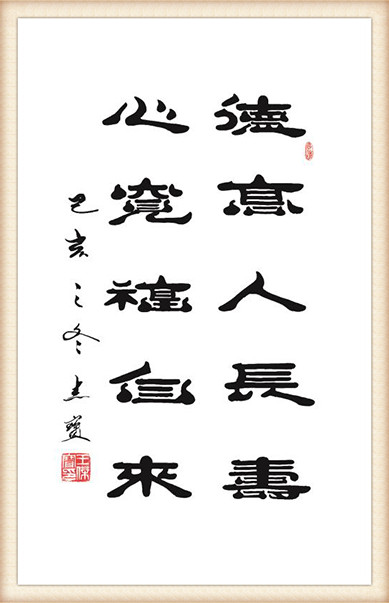 德高人長壽
心寬福自來
己亥之冬